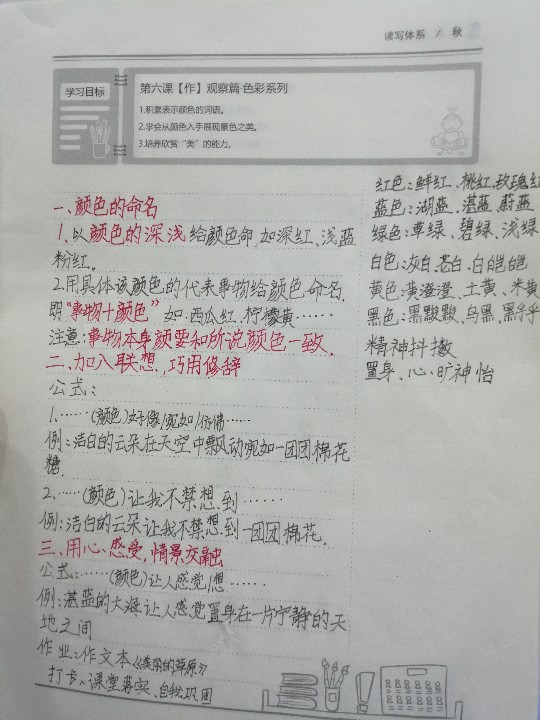 读写体系 / 秋
学习目标
第六课【作】观察篇·色彩系列
1.积累表示颜色的词语。
2.学会从颜色入手展现景色之美。
3.培养欣赏“美”的能力。
一、颜色的命名
1、以颜色的深浅给颜色命,如深红、浅蓝
粉红。
2.用具体该颜色的代表事物给颜色命名.
即“事物十颜色”如:西瓜红、柠檬黄……
注意:事物本身颜要和所说颜色一致.
二、加入联想,巧用修辞
公式:
1.……(颜色)好像/宛如/仿佛……
例:洁白的云朵在天空中飘动宛如一团团棉花
糖.
2.……(颜色)让我不禁想到……
例:洁白的云朵让我不禁想到一团团棉花.
三、用心感受,情景交融
公式:……(颜色)让人感觉/想……
例:湛蓝的大海让人感觉置身在一片宁静的天
地之间
作业:作文本《美丽的草原》
打卡:课堂落实、自我巩固
红色:鲜红、桃红、玫瑰红
蓝色:湖蓝、湛蓝、蔚蓝
绿色:草绿、碧绿、浅绿
白色:灰白、苍白、白皑皑
黄色:黄澄澄、土黄、米黄
黑色:黑黢黢、乌黑、黑乎乎
精神抖擞
置身、心旷神怡